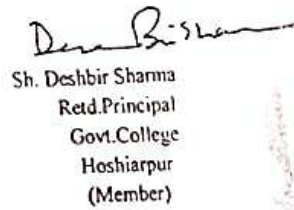 Sh. Deshbir Sharma
Retd.Principal
Govt.College
Hoshiarpur
(Member)